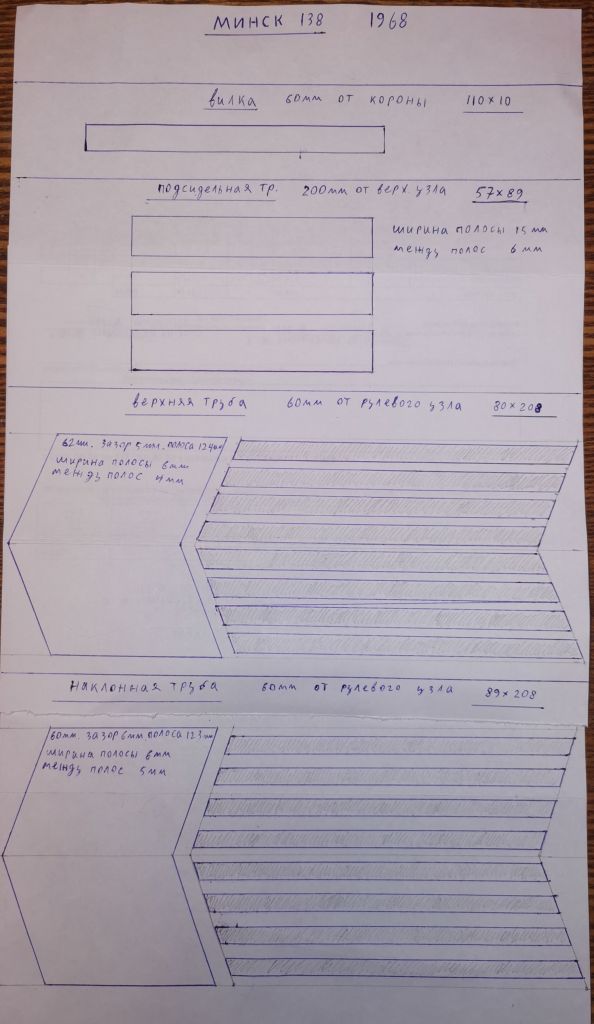 МИНСК 138 1968
вилка 60мм от короны 110×10
подсидельная тр. 200мм от верх. узла 57×89
ширина полосы 15 мм
между полос 6 мм
верхняя труба 60мм от рулевого узла 80×208
62мм. зазор 5мм. полоса 124мм
ширина полосы 6мм
между полос 4мм
наклонная труба 60мм от рулевого узла 89×208
60мм. зазор 6мм. полоса 123мм
ширина полосы 6мм
между полос 5мм